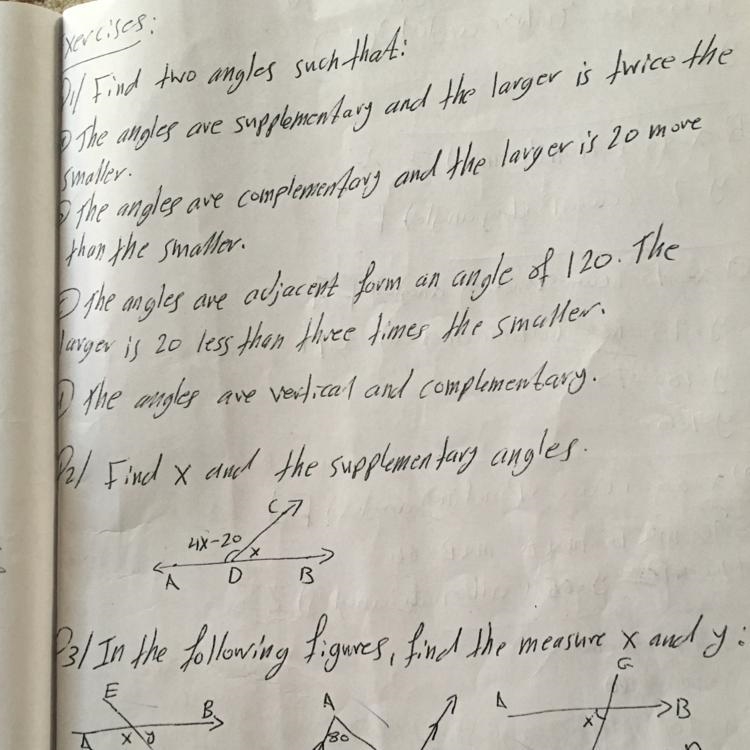 xercises:
Q1/ Find two angles such that:
The angles are supplementary and the larger is twice the
smaller.
The angles are complementary and the larger is 20 more
than the smaller.
The angles are adjacent form an angle of 120. The
larger is 20 less than three times the smaller.
The angles are vertical and complementary.
Q2/ Find x and the supplementary angles.
C
4x-20 x
A D B
Q3/ In the following figures, find the measure x and y:
E B A x y
A 80
G A B x